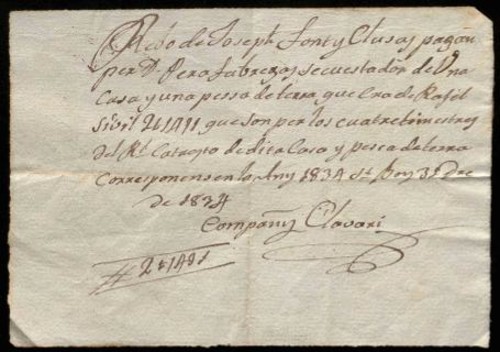 Rebo de Joseph Font y Clusas pagan
per Dn. Pera Fabregas secuestador de Una
Casa y una pessa de terra que Era de Rafel
Sivil que son per los cuatre trimestres
del Rl. Catrasto de dita Casa y pesca de terra
Corresponens en lo Any 1834 St Boy 31 Dee
de 1834
Company Clavari